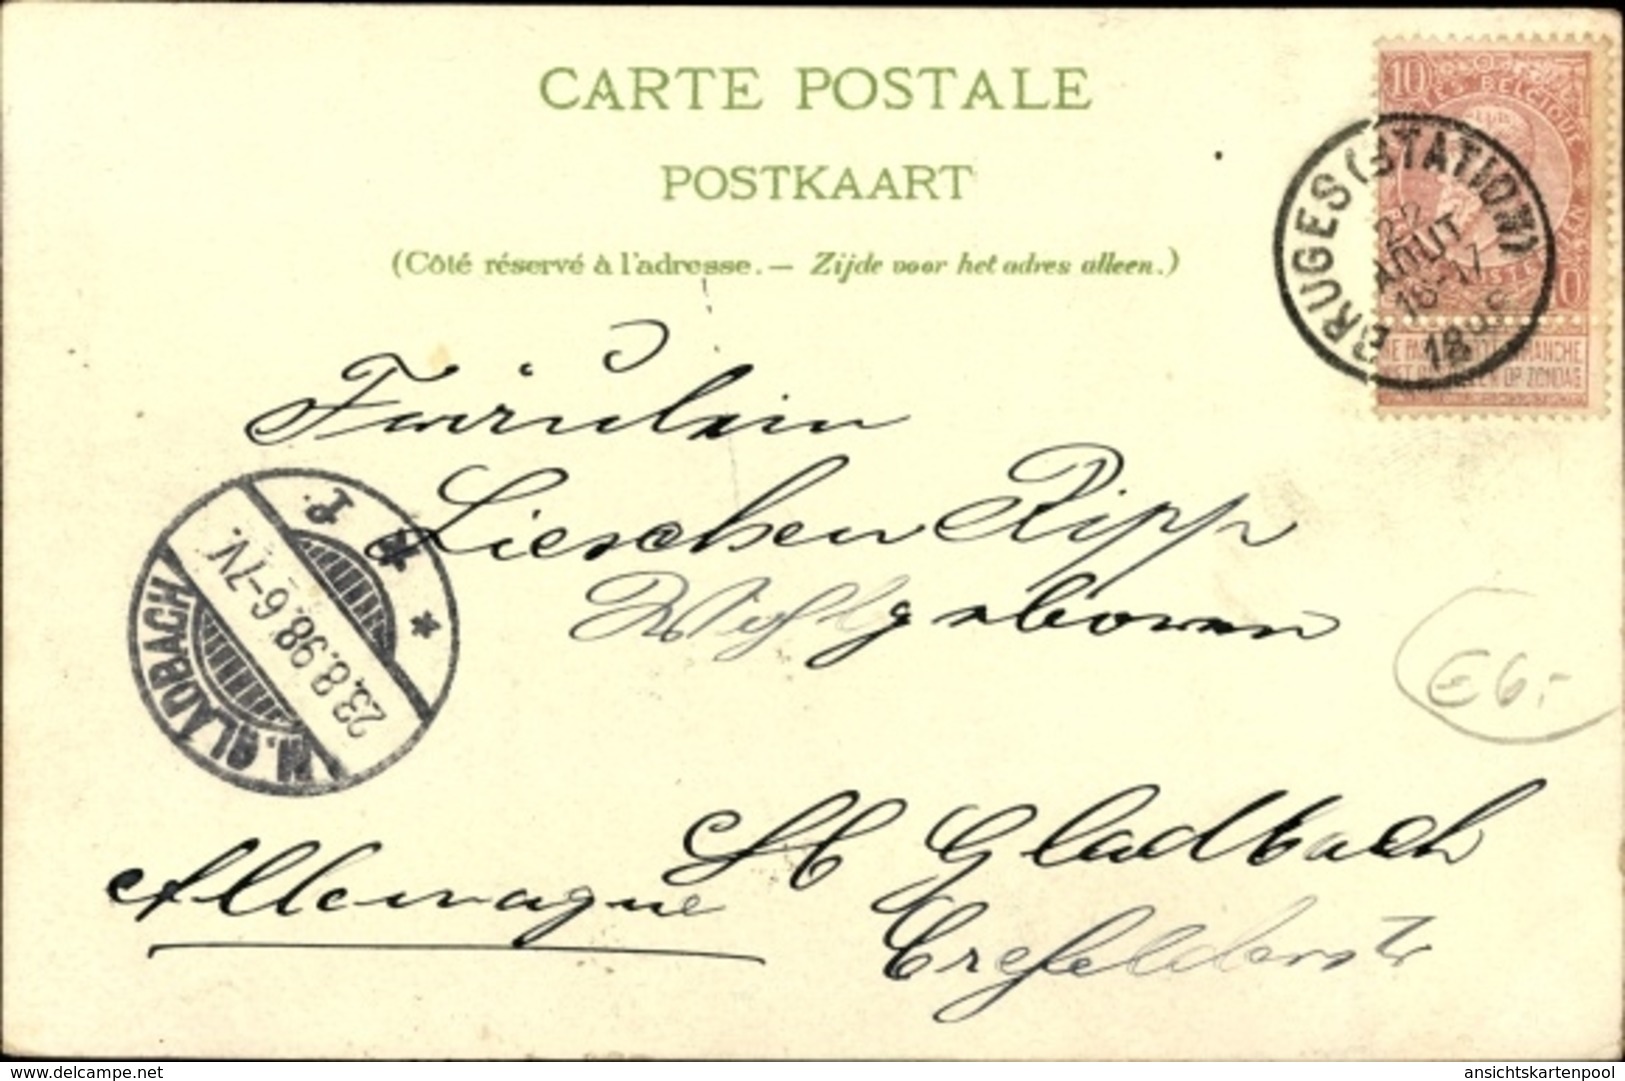 CARTE POSTALE
POSTKAART
(Côté réservé à l'adresse. — Zijde voor het adres alleen.)
10
BELGIQUE
BRUGES (STATION)
AOUT
16-17
189
10
OP ZONDAG
Fräulein
Lieschen Ripp
Wohlgeboren
M. GLADBACH
23.8.98.6-7V.
E6.-
M Gladbach
Crefelderstr
Allemagne
www.delcampe.net
ansichtskartenpool